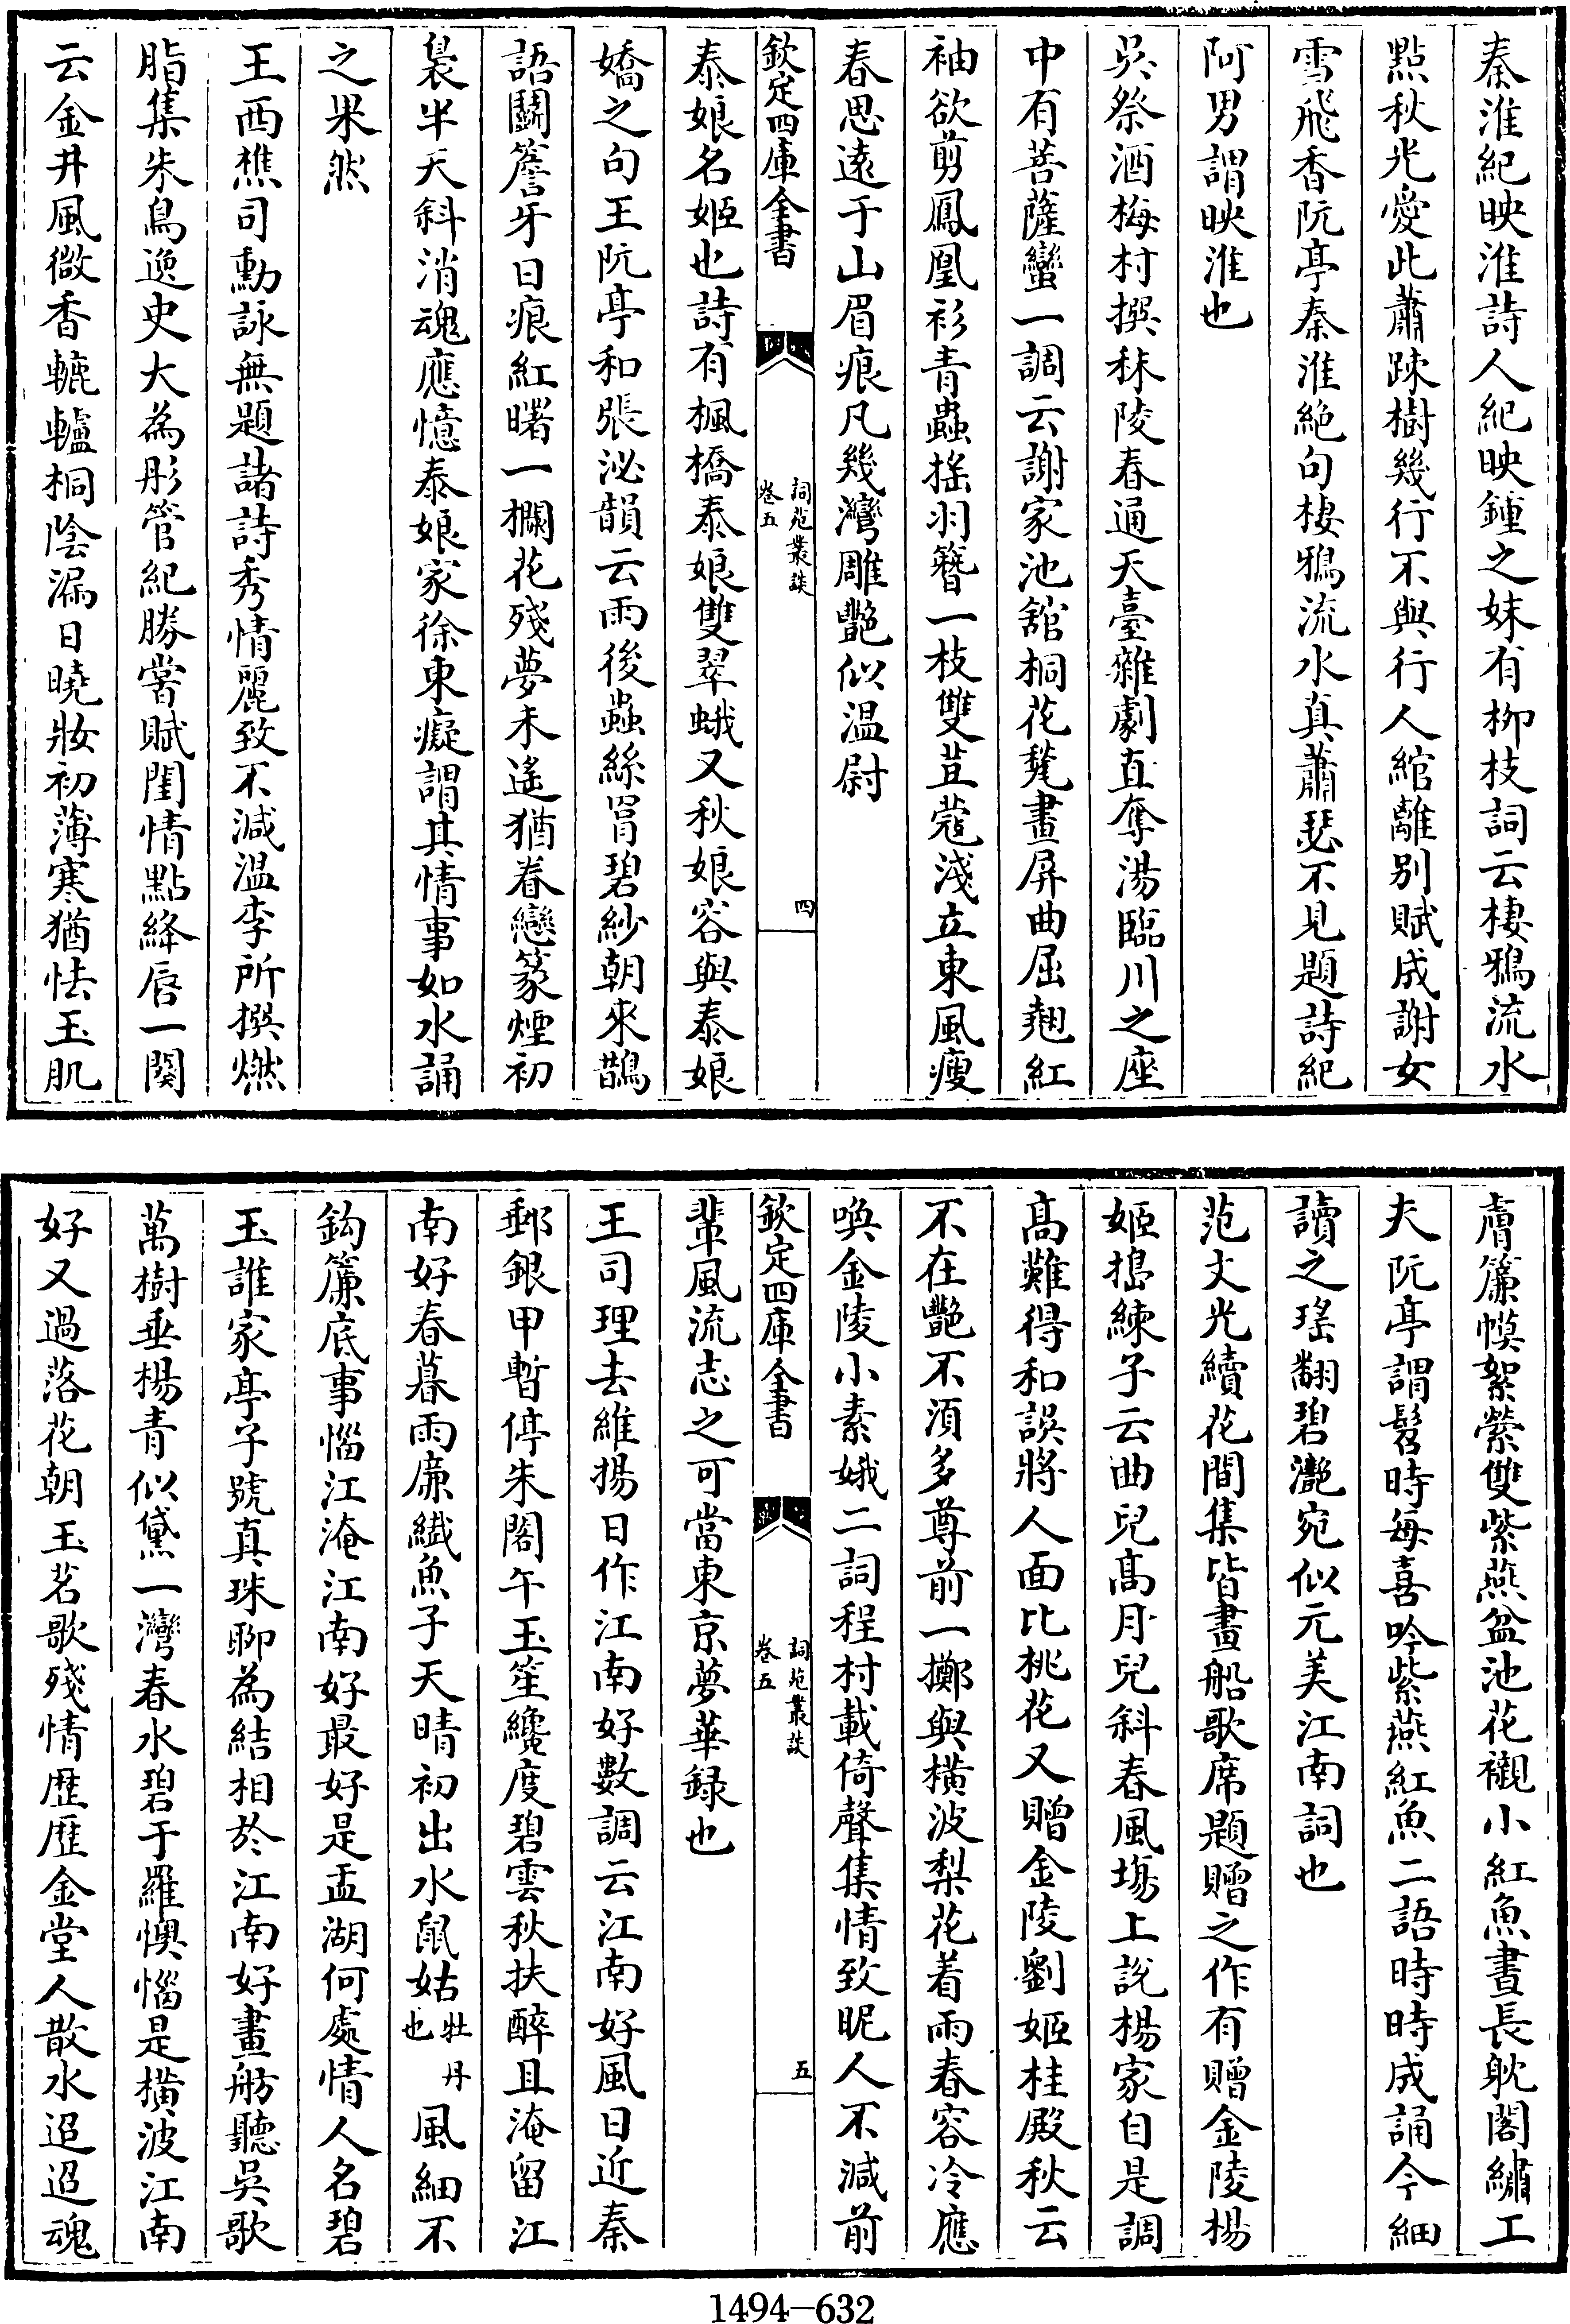 秦淮紀映淮詩人紀映鍾之妹有柳枝詞云棲鴉流水
點秋光愛此蕭踈樹幾行不與行人綰離别賦成謝女
雪飛香阮亭秦淮絶句棲鴉流水真蕭瑟不見題詩紀
阿男謂映淮也
吳祭酒梅村撰秣陵春通天臺雜劇直奪湯臨川之座
中有菩薩蠻一調云謝家池舘桐花甃畫屏曲屈翹紅
袖欲剪鳳凰衫青蟲搖羽簪一枝雙荳蔻淺立東風瘦
春思遠于山眉痕凡幾灣雕艶似温尉
欽定四庫全書
詞苑叢談
卷五
四
泰娘名姬也詩有楓橋泰娘雙翠蛾又秋娘容與泰娘
嬌之句王阮亭和張泌韻云雨後蟲絲罥碧紗朝來鵲
語鬭簷牙日痕紅曙一欄花殘夢未遙猶眷戀篆煙初
裊半天斜消魂應憶泰娘家徐東癡謂其情事如水誦
之果然
王西樵司勳詠無題諸詩秀情麗致不減温李所撰燃
脂集朱鳥逸史大為彤管紀勝嘗賦閨情點絳唇一闋
云金井風微香轆轤桐陰漏日曉妝初薄寒猶怯玉肌
膚簾幙絮縈雙紫燕盆池花襯小紅魚晝長躭閣繡工
夫阮亭謂髫時每喜吟紫燕紅魚二語時時成誦今細
讀之瑤翻碧灔宛似元美江南詞也
范文光續花間集皆畫船歌席題贈之作有贈金陵楊
姬搗練子云曲兒高月兒斜春風塲上說楊家自是調
高難得和誤將人面比桃花又贈金陵劉姬桂殿秋云
不在艷不須多尊前一擲與橫波梨花着雨春容冷應
喚金陵小素娥二詞程村載倚聲集情致昵人不減前
欽定四庫全書
詞苑叢談
卷五
五
輩風流志之可當東京夢華録也
王司理去維揚日作江南好數調云江南好風日近秦
郵銀甲暫停朱閣午玉笙纔度碧雲秋扶醉且淹留江
南好春暮雨廉纖魚子天晴初出水鼠姑牡丹也風細不
鈎簾底事惱江淹江南好最好是盂湖何處情人名碧
玉誰家亭子號真珠聊為結相於江南好畫舫聽吳歌
萬樹垂楊青似黛一灣春水碧于羅懊惱是橫波江南
好又過落花朝玉茗歌殘情歴歴金堂人散水迢迢魂
1494-632